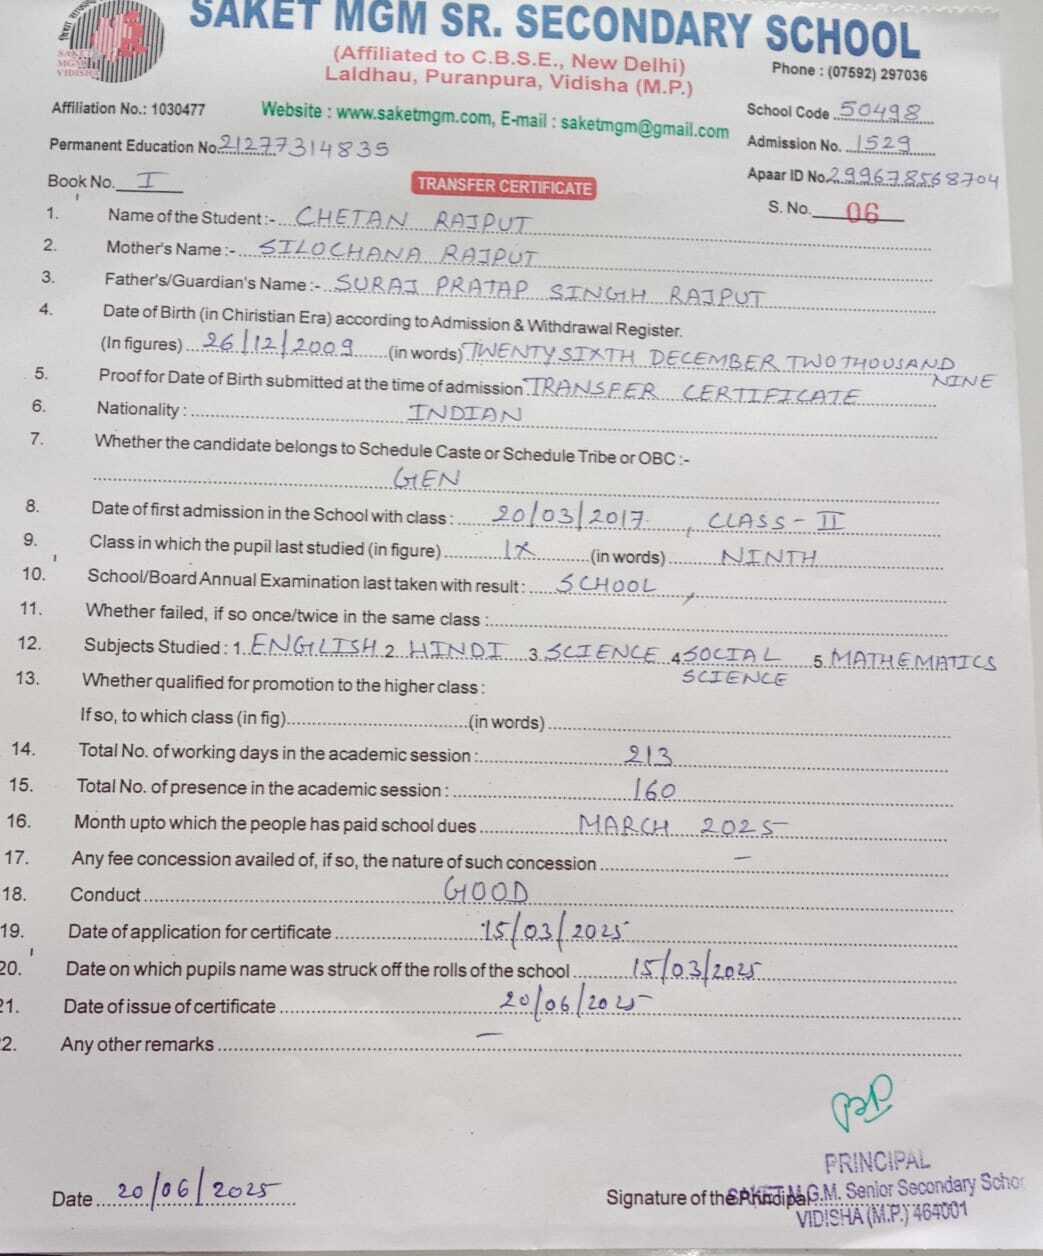 SAKET MGM SR. SECONDARY SCHOOL
(Affiliated to C.B.S.E., New Delhi)
Laldhau, Puranpura, Vidisha (M.P.)
Phone : (07592) 297036
SAKET
MGM
VIDISHA
Affiliation No.: 1030477
Website : www.saketmgm.com, E-mail : saketmgm@gmail.com
School Code 50498
Permanent Education No. 21277314835
Admission No. 1529
Apaar ID No. 299678568704
Book No. I
TRANSFER CERTIFICATE
S. No. 06
1. Name of the Student :- CHETAN RAJPUT
2. Mother's Name :- SILOCHANA RAJPUT
3. Father's/Guardian's Name :- SURAJ PRATAP SINGH RAJPUT
4. Date of Birth (in Chiristian Era) according to Admission & Withdrawal Register.
(In figures) 26/12/2009 (in words) TWENTY SIXTH DECEMBER TWO THOUSAND
NINE
5. Proof for Date of Birth submitted at the time of admission TRANSFER CERTIFICATE
6. Nationality : INDIAN
7. Whether the candidate belongs to Schedule Caste or Schedule Tribe or OBC :-
GEN
8. Date of first admission in the School with class : 20/03/2017, CLASS - II
9. Class in which the pupil last studied (in figure) IX (in words) NINTH
10. School/Board Annual Examination last taken with result : SCHOOL,
11. Whether failed, if so once/twice in the same class :
12. Subjects Studied : 1. ENGLISH 2. HINDI 3. SCIENCE 4. SOCIAL 5. MATHEMATICS
SCIENCE
13. Whether qualified for promotion to the higher class :
If so, to which class (in fig) (in words)
14. Total No. of working days in the academic session : 213
15. Total No. of presence in the academic session : 160
16. Month upto which the people has paid school dues MARCH 2025
17. Any fee concession availed of, if so, the nature of such concession —
18. Conduct GOOD
19. Date of application for certificate 15/03/2025
20. Date on which pupils name was struck off the rolls of the school 15/03/2025
21. Date of issue of certificate 20/06/2025
2. Any other remarks —
PRINCIPAL
Date 20/06/2025
Signature of the Principal
SAKET M.G.M. Senior Secondary Schoo
VIDISHA (M.P.) 464001